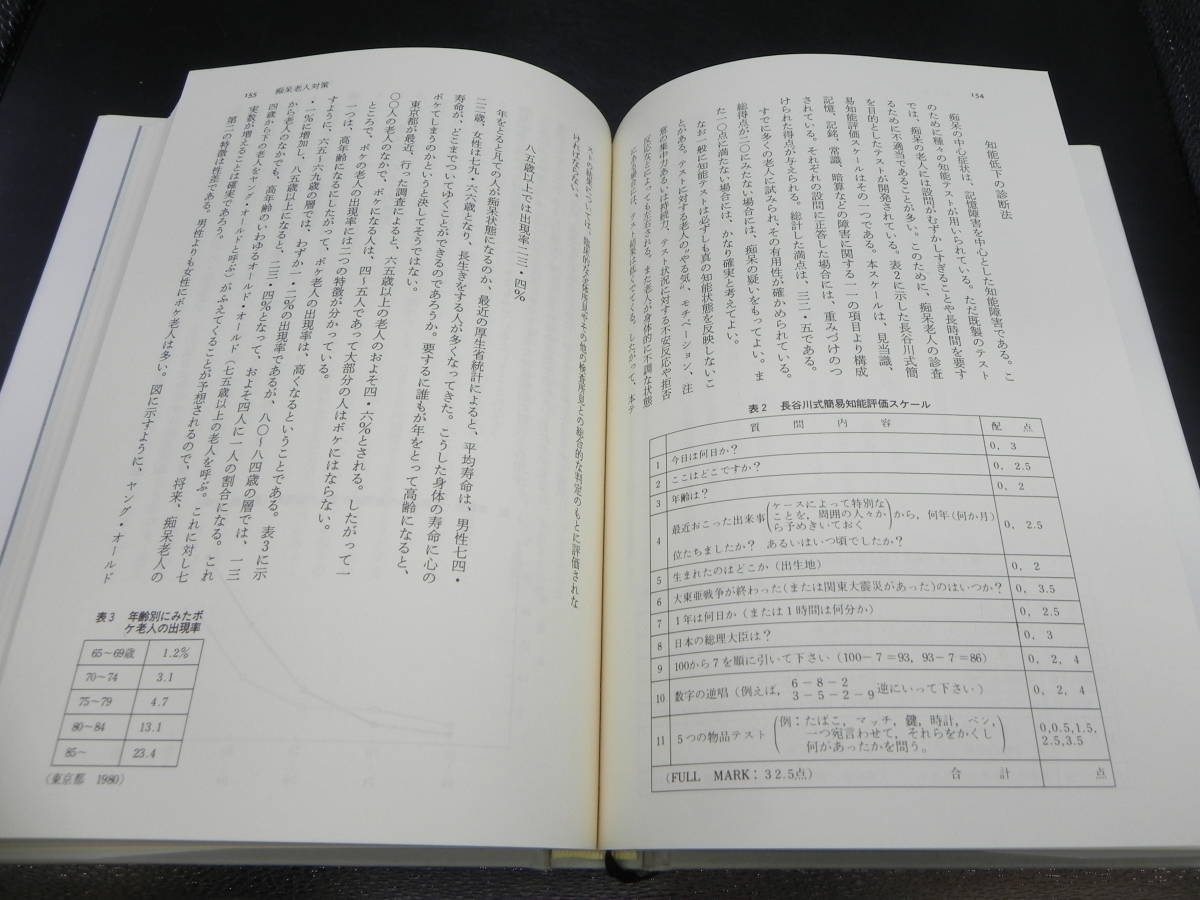 154
知能低下の診断法
痴呆の中心症状は、記憶障害を中心とした知能障害である。こ
のために種々の知能テストが用いられている。ただ既製のテスト
では、痴呆の老人には設問がむずかしすぎることや長時間を要す
るために不適当であることが多い。このために、痴呆老人の診査
を目的としたテストが開発されている。表2に示した長谷川式簡
易知能評価スケールはその一つである。本スケールは、見当識、
記憶、記銘、常識、暗算などの障害に関する一一の項目より構成
されている。それぞれの設問に正答した場合には、重みづけのつ
けられた得点が与えられる。総計した満点は、三二・五である。
すでに多くの老人に試みられ、その有用性が確かめられている。
総得点が二〇にみたない場合には、痴呆の疑いをもってよい。ま
た一〇点に満たない場合には、かなり確実と考えてよい。
なお一般に知能テストは必ずしも真の知能状態を反映しないこ
とがある。テストに対する老人の"やる気"、モチベーション、注
意の集中力あるいは持続力、テスト状況に対する不安反応や拒否
反応などによっても左右される。また老人が身体的に不調な状態
にある場合には、テスト結果は低くでてくる。したがって、本テ
表2 長谷川式簡易知能評価スケール
質問内容 配点
1 今日は何日か? 0, 3
2 ここはどこですか? 0, 2.5
3 年齢は? 0, 2
4 最近おこった出来事(ケースによって特別なことを,周囲の人々から予めきいておく)から,何年(何か月)位たちましたか? あるいはいつ頃でしたか? 0, 2.5
5 生まれたのはどこか(出生地) 0, 2
6 大東亜戦争が終わった(または関東大震災があった)のはいつか? 0, 3.5
7 1年は何日か(または1時間は何分か) 0, 2.5
8 日本の総理大臣は? 0, 3
9 100から7を順に引いて下さい(100-7=93, 93-7=86) 0, 2, 4
10 数字の逆唱(例えば, 6-8-2 3-5-2-9 逆にいって下さい) 0, 2, 4
11 5つの物品テスト(例:たばこ,マッチ,鍵,時計,ペン,一つ宛言わせて,それらをかくし何があったかを問う。) 0,0.5,1.5, 2.5,3.5
(FULL MARK:32.5点) 合計 点
155 痴呆老人対策
ストの結果については、臨床的な身体所見やその他の検査所見との総合的な判定のもとに評価されな
ければならない。
八五歳以上では出現率二三・四%
年をとると凡ての人が痴呆状態になるのか、最近の厚生省統計によると、平均寿命は、男性七四・
二二歳、女性は七九・六六歳となり、長生きをする人が多くなってきた。こうした身体の寿命に心の
寿命が、どこまでついてゆくことができるのであろうか。要するに誰もが年をとって高齢になると、
ボケてしまうのかというと決してそうではない。
東京都が最近、行った調査によると、六五歳以上の老人のおよそ四・六%とされる。したがって一
〇〇人の老人のなかで、ボケになる人は、四~五人であって大部分の人はボケにはならない。
ところで、ボケの老人の出現率には二つの特徴が分かっている。
一つは、高年齢になるにしたがって、ボケ老人の出現率は、高くなるということである。表3に示
すように、六五~六九歳の層では、わずか一・二%の出現率であるが、八〇~八四歳の層では、一三
・一%に増加し、八五歳以上になると、二三・四%となって、およそ四人に一人の割合になる。これ
から老人のなかでも、高年齢のいわゆるオールド・オールド(七五歳以上の老人を呼ぶ。これに対し七
四歳から下の老人をヤング・オールドと呼ぶ)がふえてくることが予想されるので、将来、痴呆老人の
実数が増えることは確実であろう。
第二の特徴は性差である。男性よりも女性にボケ老人は多い。図に示すように、ヤング・オールド
表3 年齢別にみたボ
ケ老人の出現率
65~69歳 1.2%
70~74 3.1
75~79 4.7
80~84 13.1
85~ 23.4
(東京都 1980)